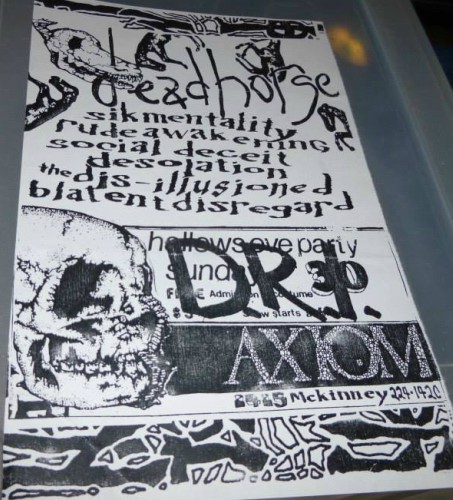 deadhorse
sikmentality
rude awakening
social deceit
desolation
the dis-illusioned
blatent disregard
hallows eve party
sunday 30
D.R.I.
Admission costume
starts
AXIOM
2425 McKinney 224-1420